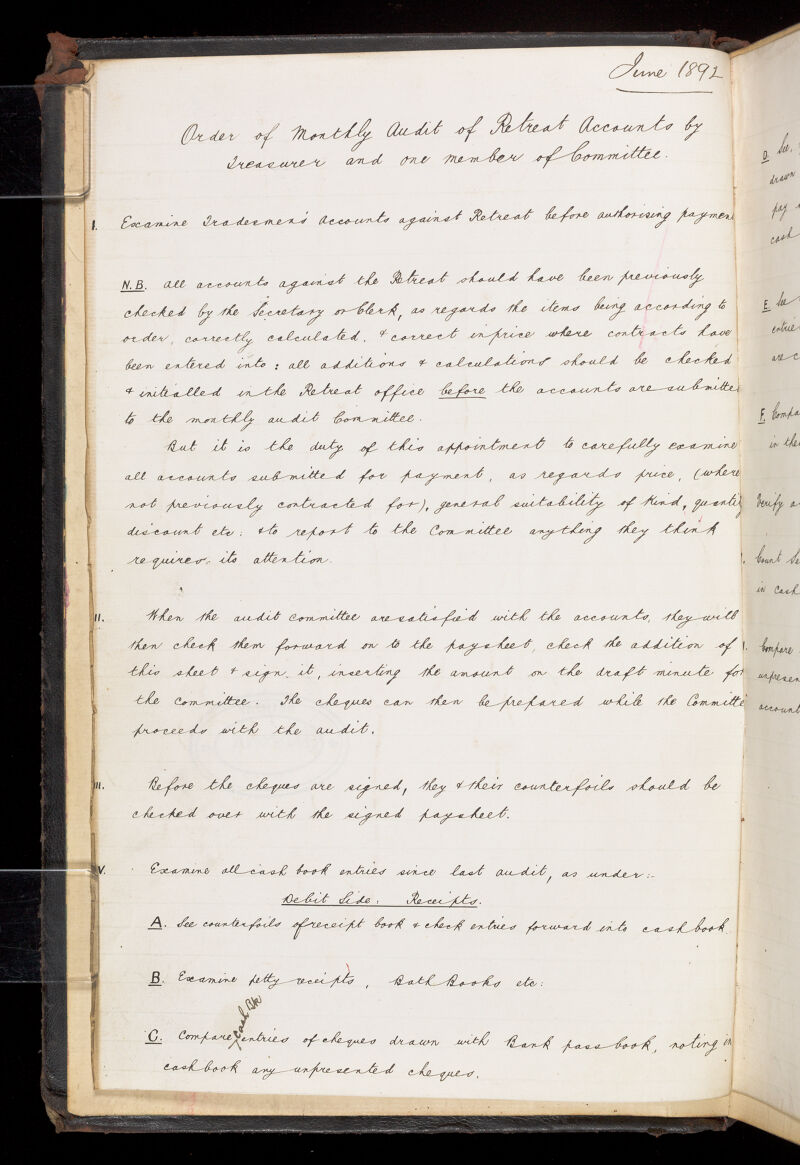 June 1892
Order of Monthly Audit of Retreat Accounts by
Treasurer and one member of Committee.
I. Examine Tradesmen's Accounts against Retreat before authorising paymen
N.B. All accounts against the Retreat should have been previously
checked by the Secretary or Clerk, as regards the items being according to
order, correctly calculated, & correct in price where contracts have
been entered into: all additions & calculations should be checked
& initialled in the Retreat office before the accounts are submitte
to the monthly audit Committee.
But it is the duty of this appointment to carefully examine
all accounts submitted for payment, as regards price, (where
not previously contracted for), general suitability of kind, quantity
discount etc: & to report to the Committee anything they think
requires its attention.
II. When the audit committee are satisfied with the accounts, they will
then check them forward on to the paysheet, check the addition of
this sheet & sign it, inserting the amount on the draft minute for
the committee. The cheques can then be prepared while the Committe
proceeds with the audit.
III. Before the cheques are signed, they & their counterfoils should be
checked over with the signed paysheet.
V. Examine all cash book entries since last audit, as under:-
Debit Side. Receipts.
A. See counterfoils of receipt book & check entries forward into cash book.
B. Examine petty receipts, Bath Books etc:
cash Bk
C. Compare entries of cheques drawn with Bank pass book, noting in
cash book any unpresented cheques.
D. See,
drawn
pay
cash
E. See
entrie
are c
F. Compa
in the
Verify a
Count
in cash
Compare
unpresen
account